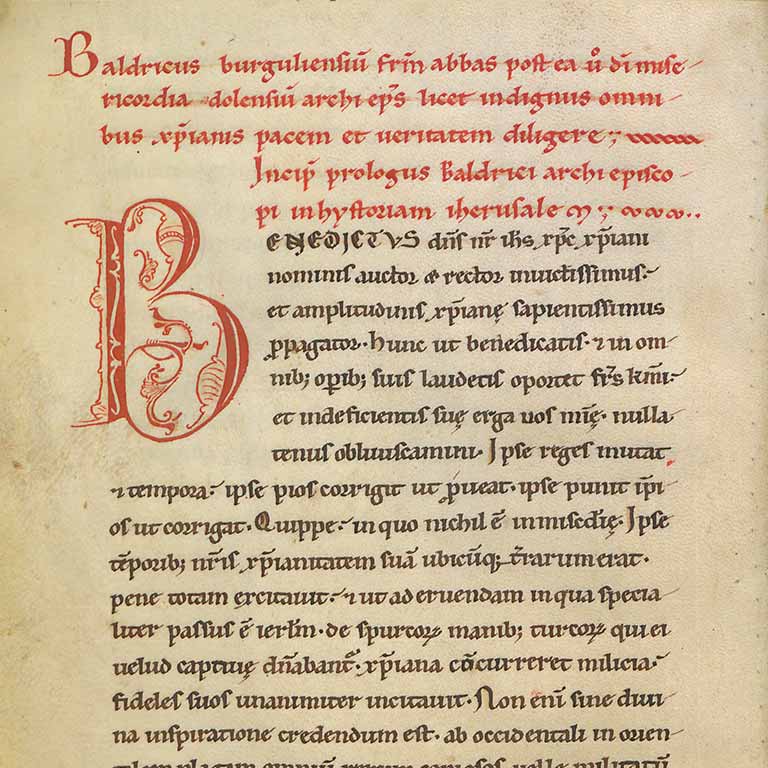 Baldricus burguliensiū frm̄ abbas postea ů dī mise-
ricordia dolensiū archi ep̄s licet indignus omni-
bus xp̄ianis pacem et ueritatem diligere;
Incip̄ prologus Baldrici archi episco-
pi in hystoriam iherusalem;
BENEDICTVS dn̄s nr̄ ih̄s xp̄c xp̄iani
nominis auctor & rector inuictissimus.
et amplitudinis xp̄ianę sapientissimus
ꝓpagator. hunc ut benedicatis. ⁊ in om-
nib; op̄ib; suis laudetis oportet fr̄s km̄i.
et indeficientis suę erga uos mīę. nulla-
tenus obliuiscamini. Ipse reges mutat
⁊ tempora. ipse pios corrigit ut p̱ueat. ipse punit īpi-
os ut corrigat. Quippe. in quo nichil ē inmisēdię. Ipse
tēporib; nr̄is xp̄ianitatem suā ubicūq; tr̄rarum erat.
pene totam excitauit. ⁊ ut ad eruendam in qua specia-
liter passus ē ierl̄m. de spurcoꝝ manib; turcoꝝ qui ei
uelud captiuę dn̄abant̄. xp̄iana cōcurreret milicia.
fideles suos unanimiter incitauit. Non enī sine diui-
na inspiratione credendum est. ab occidentali in orien-